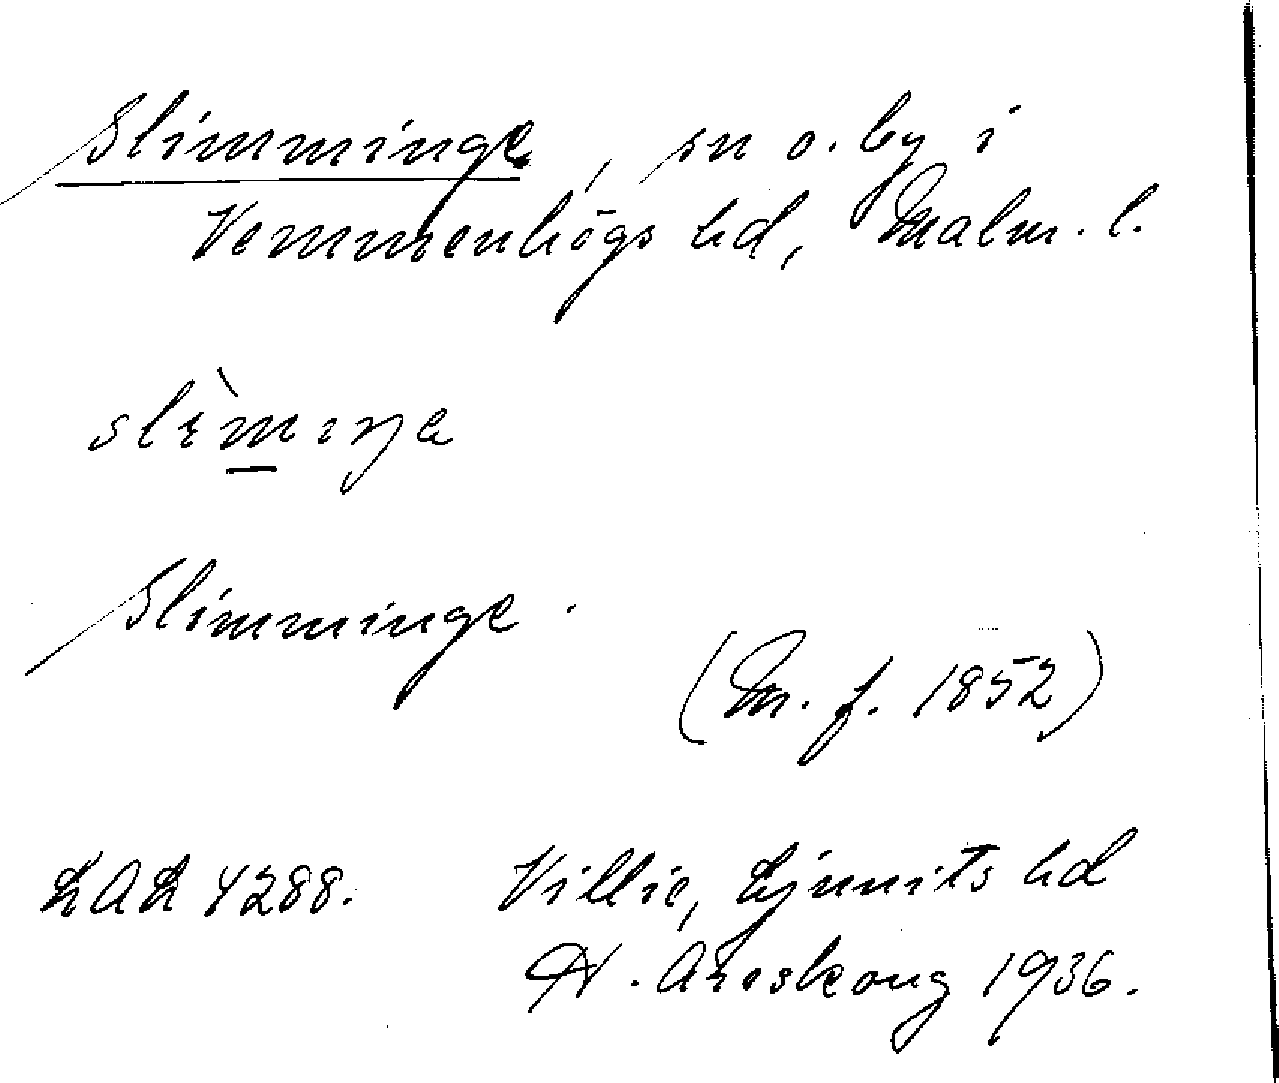 Slimminge, sn o. by i
Vemmenhögs hd, Malm. l.
slìmɪŋe
Slimminge.
(M. f. 1852)
LAL 4288. Villie, Ljunits hd
H. Areskoug 1936.